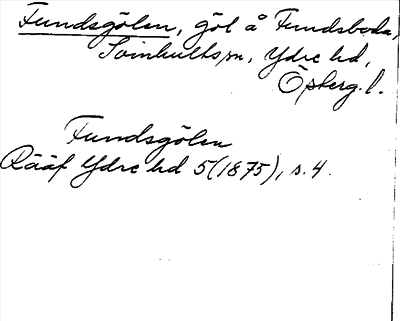 Fundsgölen, göl å Fundsboda,
Svinhults sn, Ydre hd,
Östergl.
Fundsgölen
Rääf Ydre hd 5(1875), s. 4.